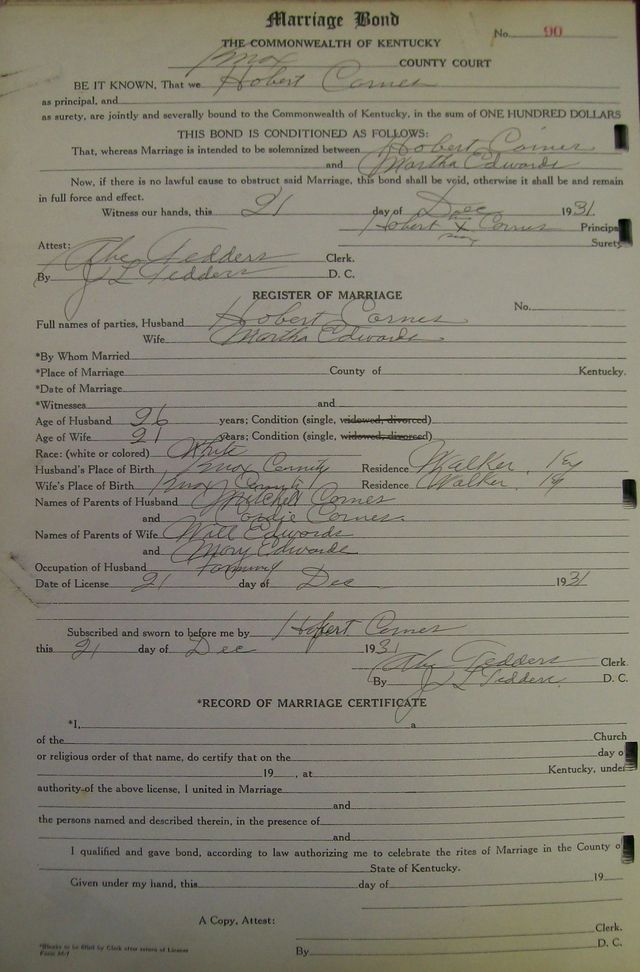 Marriage Bond
No. 90
THE COMMONWEALTH OF KENTUCKY
Knox COUNTY COURT
BE IT KNOWN, That we Hobert Cornes
as principal, and
as surety, are jointly and severally bound to the Commonwealth of Kentucky, in the sum of ONE HUNDRED DOLLARS
THIS BOND IS CONDITIONED AS FOLLOWS:
That, whereas Marriage is intended to be solemnized between Hobert Cornes
and Martha Edwards
Now, if there is no lawful cause to obstruct said Marriage, this bond shall be void, otherwise it shall be and remain
in full force and effect.
Witness our hands, this 21 day of Dec 1931.
Hobert X Cornes Principa
Surety
Attest:
Abe Tedders Clerk.
By J L Tedders D. C.
REGISTER OF MARRIAGE
No.
Full names of parties, Husband Hobert Cornes
Wife Martha Edwards
*By Whom Married
*Place of Marriage County of Kentucky.
*Date of Marriage
*Witnesses and
Age of Husband 26 years; Condition (single, widowed, divorced)
Age of Wife 21 years; Condition (single, widowed, divorced)
Race: (white or colored) White
Husband's Place of Birth Knox County Residence Walker, Ky
Wife's Place of Birth Knox County Residence Walker Ky
Names of Parents of Husband Mitchell Cornes
and Cornes.
Names of Parents of Wife Will Edwards
and Mary Edwards
Occupation of Husband Farming
Date of License 21 day of Dec 1931
Subscribed and sworn to before me by Hobert Cornes
this 21 day of Dec 1931
Abe Tedders Clerk.
By J L Tedders, D. C.
*RECORD OF MARRIAGE CERTIFICATE
*I, a
of the Church
or religious order of that name, do certify that on the day o
19 , at Kentucky, under
authority of the above license, I united in Marriage
and
the persons named and described therein, in the presence of
and
I qualified and gave bond, according to law authorizing me to celebrate the rites of Marriage in the County o
State of Kentucky.
Given under my hand, this day of 19
A Copy, Attest:
Clerk.
*Blanks to be filled by Clerk after return of License
By D. C.